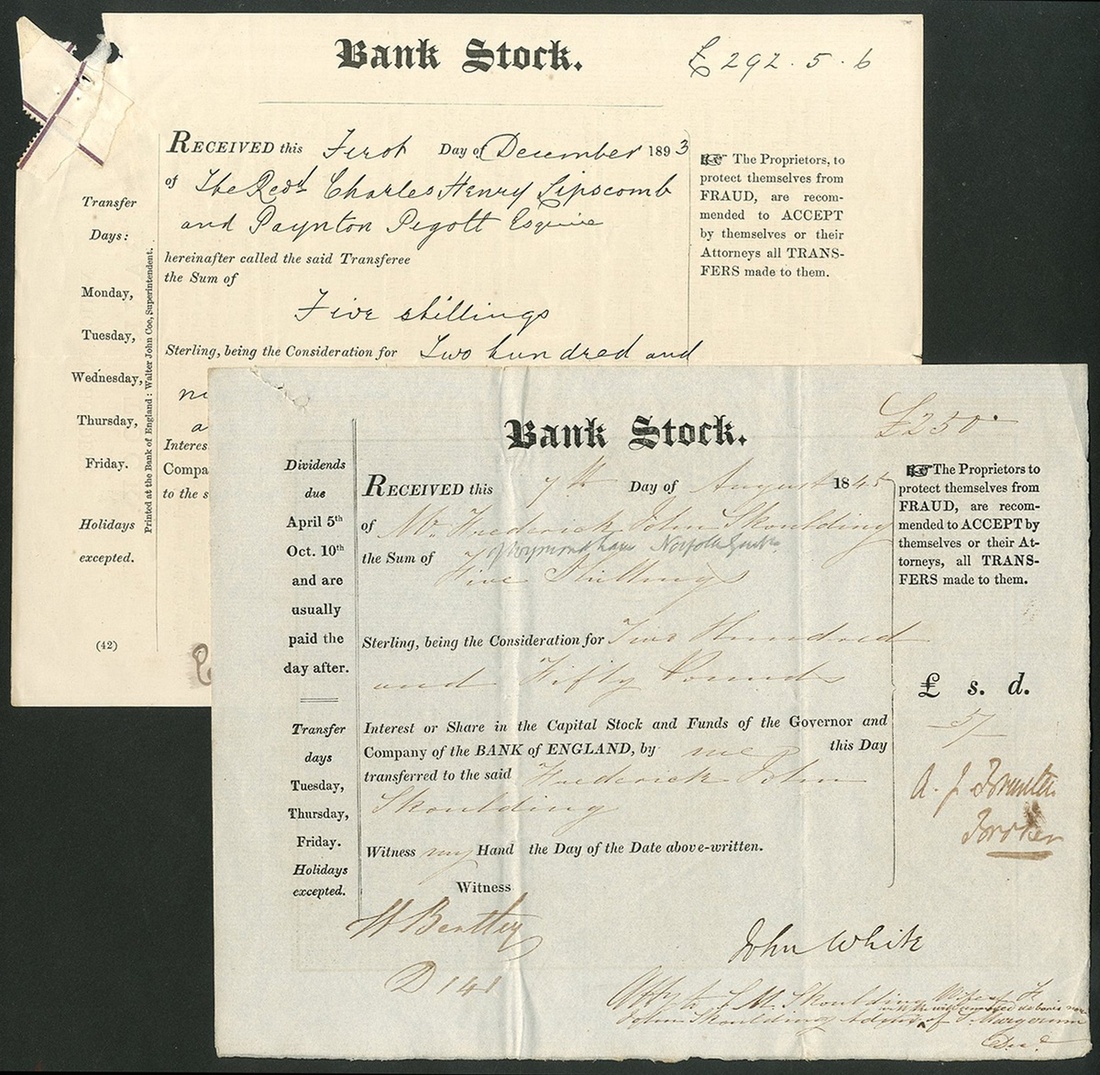 Bank Stock.
£292.5.6
RECEIVED this First Day of December 1893
of The Revd Charles Henry Lipscomb
and Paynton Pigott Esquire
hereinafter called the said Transferee
the Sum of
Five shillings
Sterling, being the Consideration for Two hundred and
Interes
Compa
to the s
☞ The Proprietors, to
protect themselves from
FRAUD, are recom-
mended to ACCEPT
by themselves or their
Attorneys all TRANS-
FERS made to them.
Transfer
Days:
Monday,
Tuesday,
Wednesday,
Thursday,
Friday.
Holidays
excepted.
(42)
Printed at the Bank of England: Walter John Coe, Superintendent.
Bank Stock.
£250
Dividends
due
April 5th
Oct. 10th
and are
usually
paid the
day after.
Transfer
days
Tuesday,
Thursday,
Friday.
Holidays
excepted.
RECEIVED this 7th Day of August 1845
of Mr Frederick John Skoulding
of Wymondham Norfolk
the Sum of Five Shillings
Sterling, being the Consideration for Two Hundred
and Fifty Pounds
Interest or Share in the Capital Stock and Funds of the Governor and
Company of the BANK of ENGLAND, by me this Day
transferred to the said Frederick John
Skoulding
Witness my Hand the Day of the Date above-written.
Witness
W Bentley
D 141
John White
☞ The Proprietors to
protect themselves from
FRAUD, are recom-
mended to ACCEPT by
themselves or their At-
torneys, all TRANS-
FERS made to them.
£ s. d.
5/
A. J.
Broker
Skoulding Wife of
John Skoulding